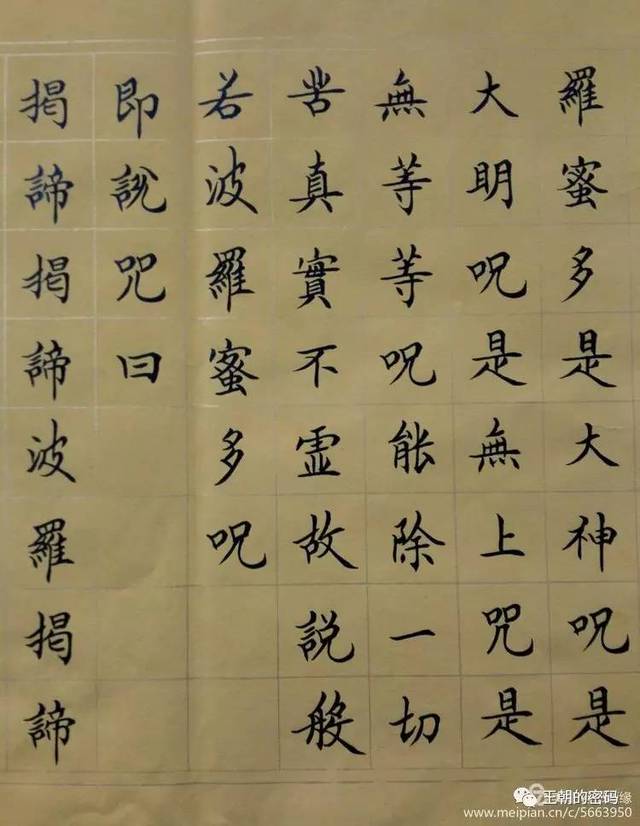 羅蜜多是大神呪是
大明呪是無上咒是
無等等呪能除一切
苦真實不虛故說般
若波羅蜜多呪
即說咒曰
揭諦揭諦波羅揭諦
王朝的密码
www.meipian.cn/c/5663950